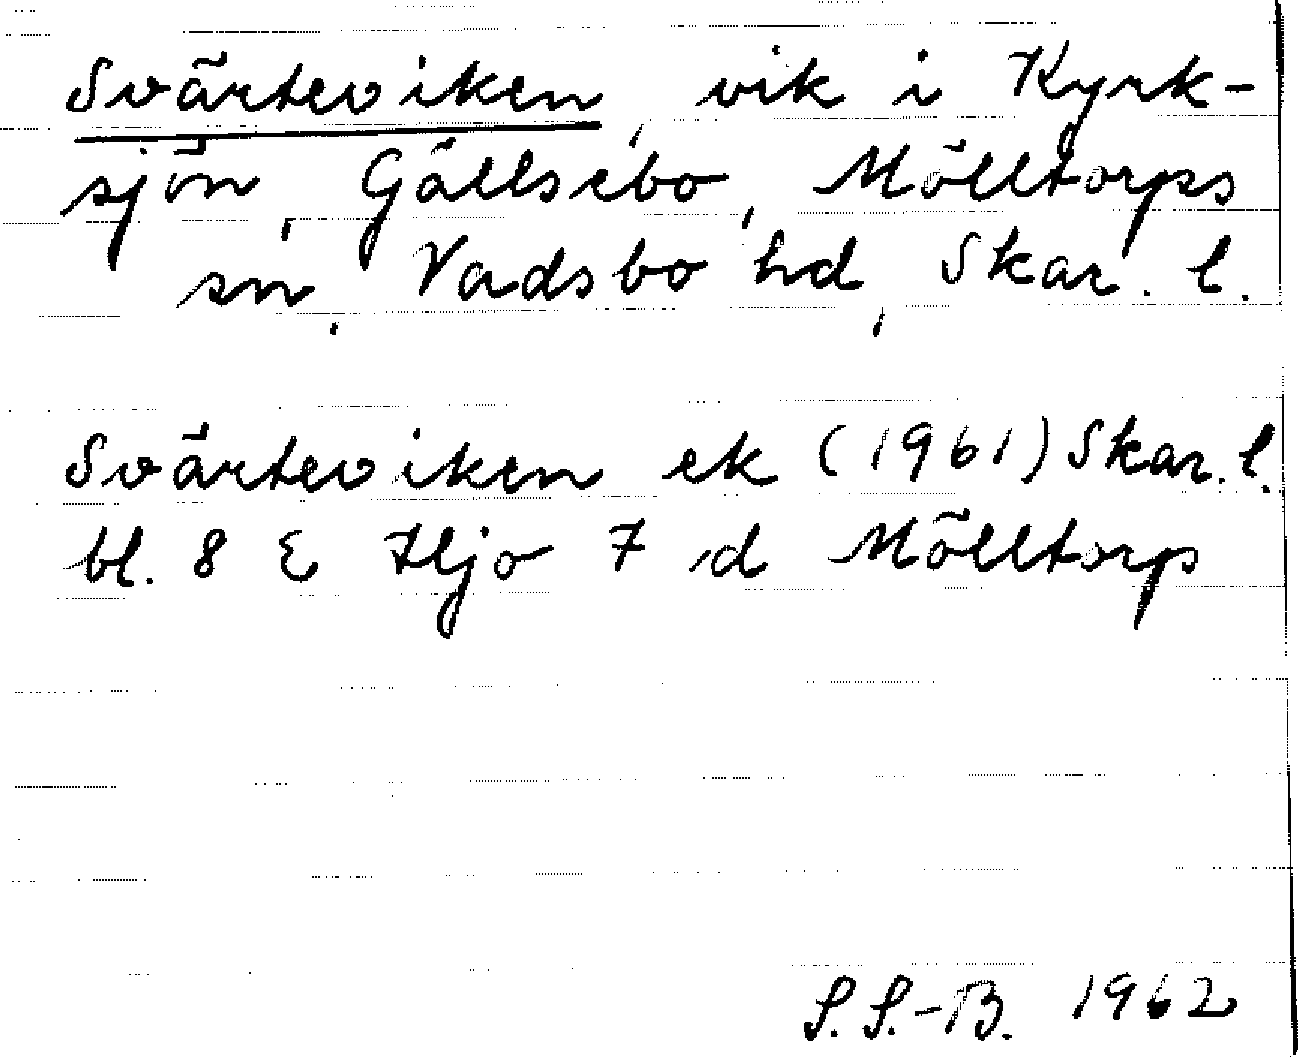 Svärteviken, vik i Kyrk-
sjön, Gällsebo, Mölltorps
sn, Vadsbo hd, Skar. l.
Svärteviken ek (1961) Skar. l.
bl. 8 E Hjo 7 d Mölltorp
S. S.-B. 1962